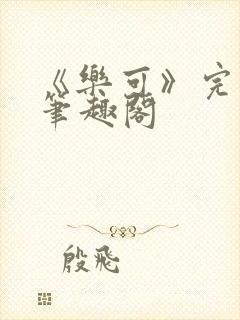 《樂可》完
筆趣閣
殷飛